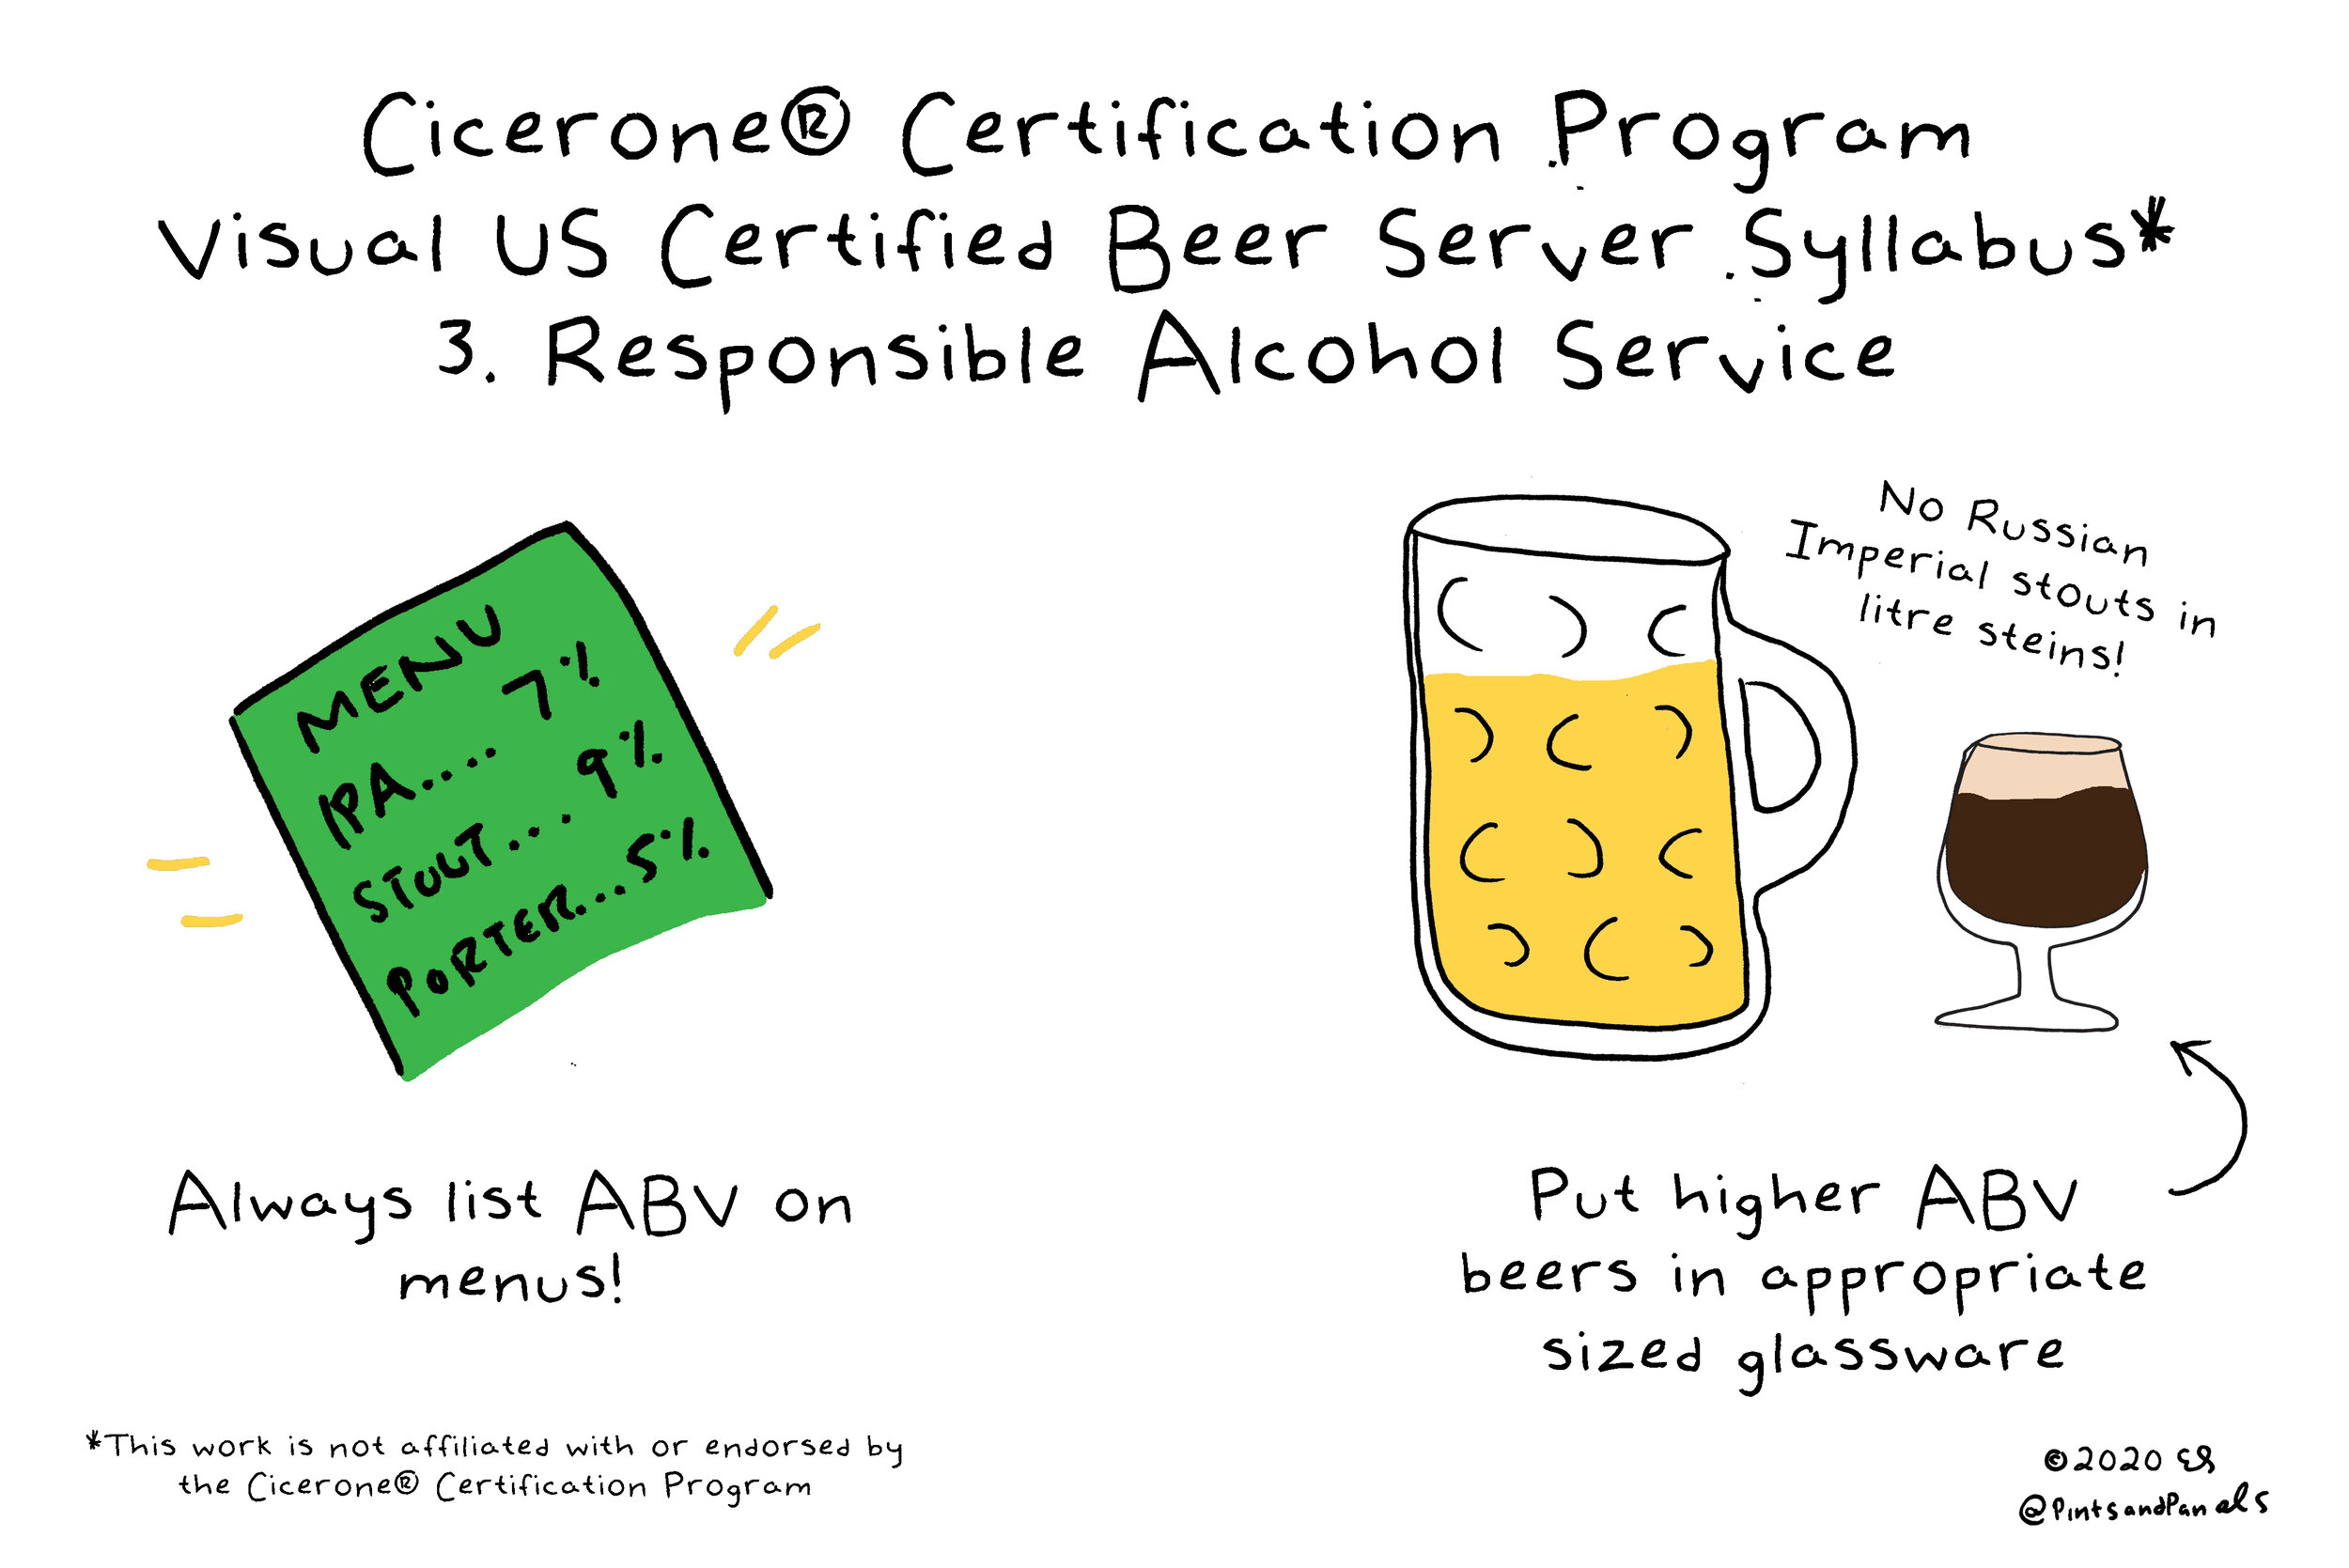 Cicerone® Certification Program
Visual US Certified Beer Server Syllabus*
3. Responsible Alcohol Service
MENU
IPA.... 7%
STOUT... 9%
PORTER...5%
Always list ABV on
menus!
No Russian
Imperial stouts in
litre steins!
Put higher ABV
beers in appropriate
sized glassware
*This work is not affiliated with or endorsed by
the Cicerone® Certification Program
©2020 ES
@PintsandPanels